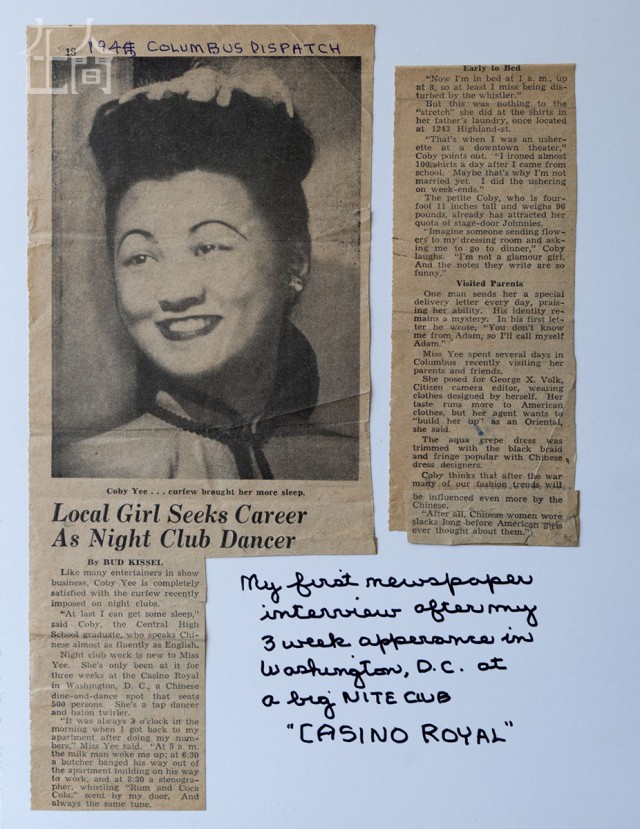 在
人間
13 1945 COLUMBUS DISPATCH
Coby Yee . . . curfew brought her more sleep.
Local Girl Seeks Career
As Night Club Dancer
By BUD KISSEL
Like many entertainers in show
business, Coby Yee is completely
satisfied with the curfew recently
imposed on night clubs.
"At last I can get some sleep,"
said Coby, the Central High
School graduate, who speaks Chi-
nese almost as fluently as English.
Night club work is new to Miss
Yee. She's only been at it for
three weeks at the Casino Royal
in Washington, D. C., a Chinese
dine-and-dance spot that seats
500 persons. She's a tap dancer
and baton twirler.
"It was always 3 o'clock in the
morning when I got back to my
apartment after doing my num-
bers," Miss Yee said. "At 5 a. m.
the milk man woke me up; at 6:30
a butcher banged his way out of
the apartment building on his way
to work, and at 8:30 a stenogra-
pher, whistling "Rum and Coca
Cola," went by my door. And
always the same tune.
Early to Bed
"Now I'm in bed at 1 a. m., up
at 8, so at least I miss being dis-
turbed by the whistler."
But this was nothing to the
"stretch" she did at the shirts in
her father's laundry, once located
at 1243 Highland-st.
"That's when I was an usher-
ette at a downtown theater,"
Coby points out. "I ironed almost
100 shirts a day after I came from
school. Maybe that's why I'm not
married yet. I did the ushering
on week-ends."
The petite Coby, who is four-
foot 11 inches tall and weighs 96
pounds, already has attracted her
quota of stage-door Johnnies.
"Imagine someone sending flow-
ers to my dressing room and ask-
ing me to go to dinner," Coby
laughs. "I'm not a glamour girl.
And the notes they write are so
funny."
Visited Parents
One man sends her a special
delivery letter every day, prais-
ing her ability. His identity re-
mains a mystery. In his first let-
ter he wrote, "You don't know
me from Adam, so I'll call myself
Adam."
Miss Yee spent several days in
Columbus recently visiting her
parents and friends.
She posed for George X. Volk,
Citizen camera editor, wearing
clothes designed by herself. Her
taste runs more to American
clothes, but her agent wants to
"build her up" as an Oriental,
she said.
The aqua crepe dress was
trimmed with the black braid
and fringe popular with Chinese
dress designers.
Coby thinks that after the war
many of our fashion trends will
be influenced even more by the
Chinese.
"After all, Chinese women wore
slacks long before American girls
ever thought about them."
My first newspaper
interview after my
3 week apperance in
Washington, D.C. at
a big NITE CLUB
"CASINO ROYAL"